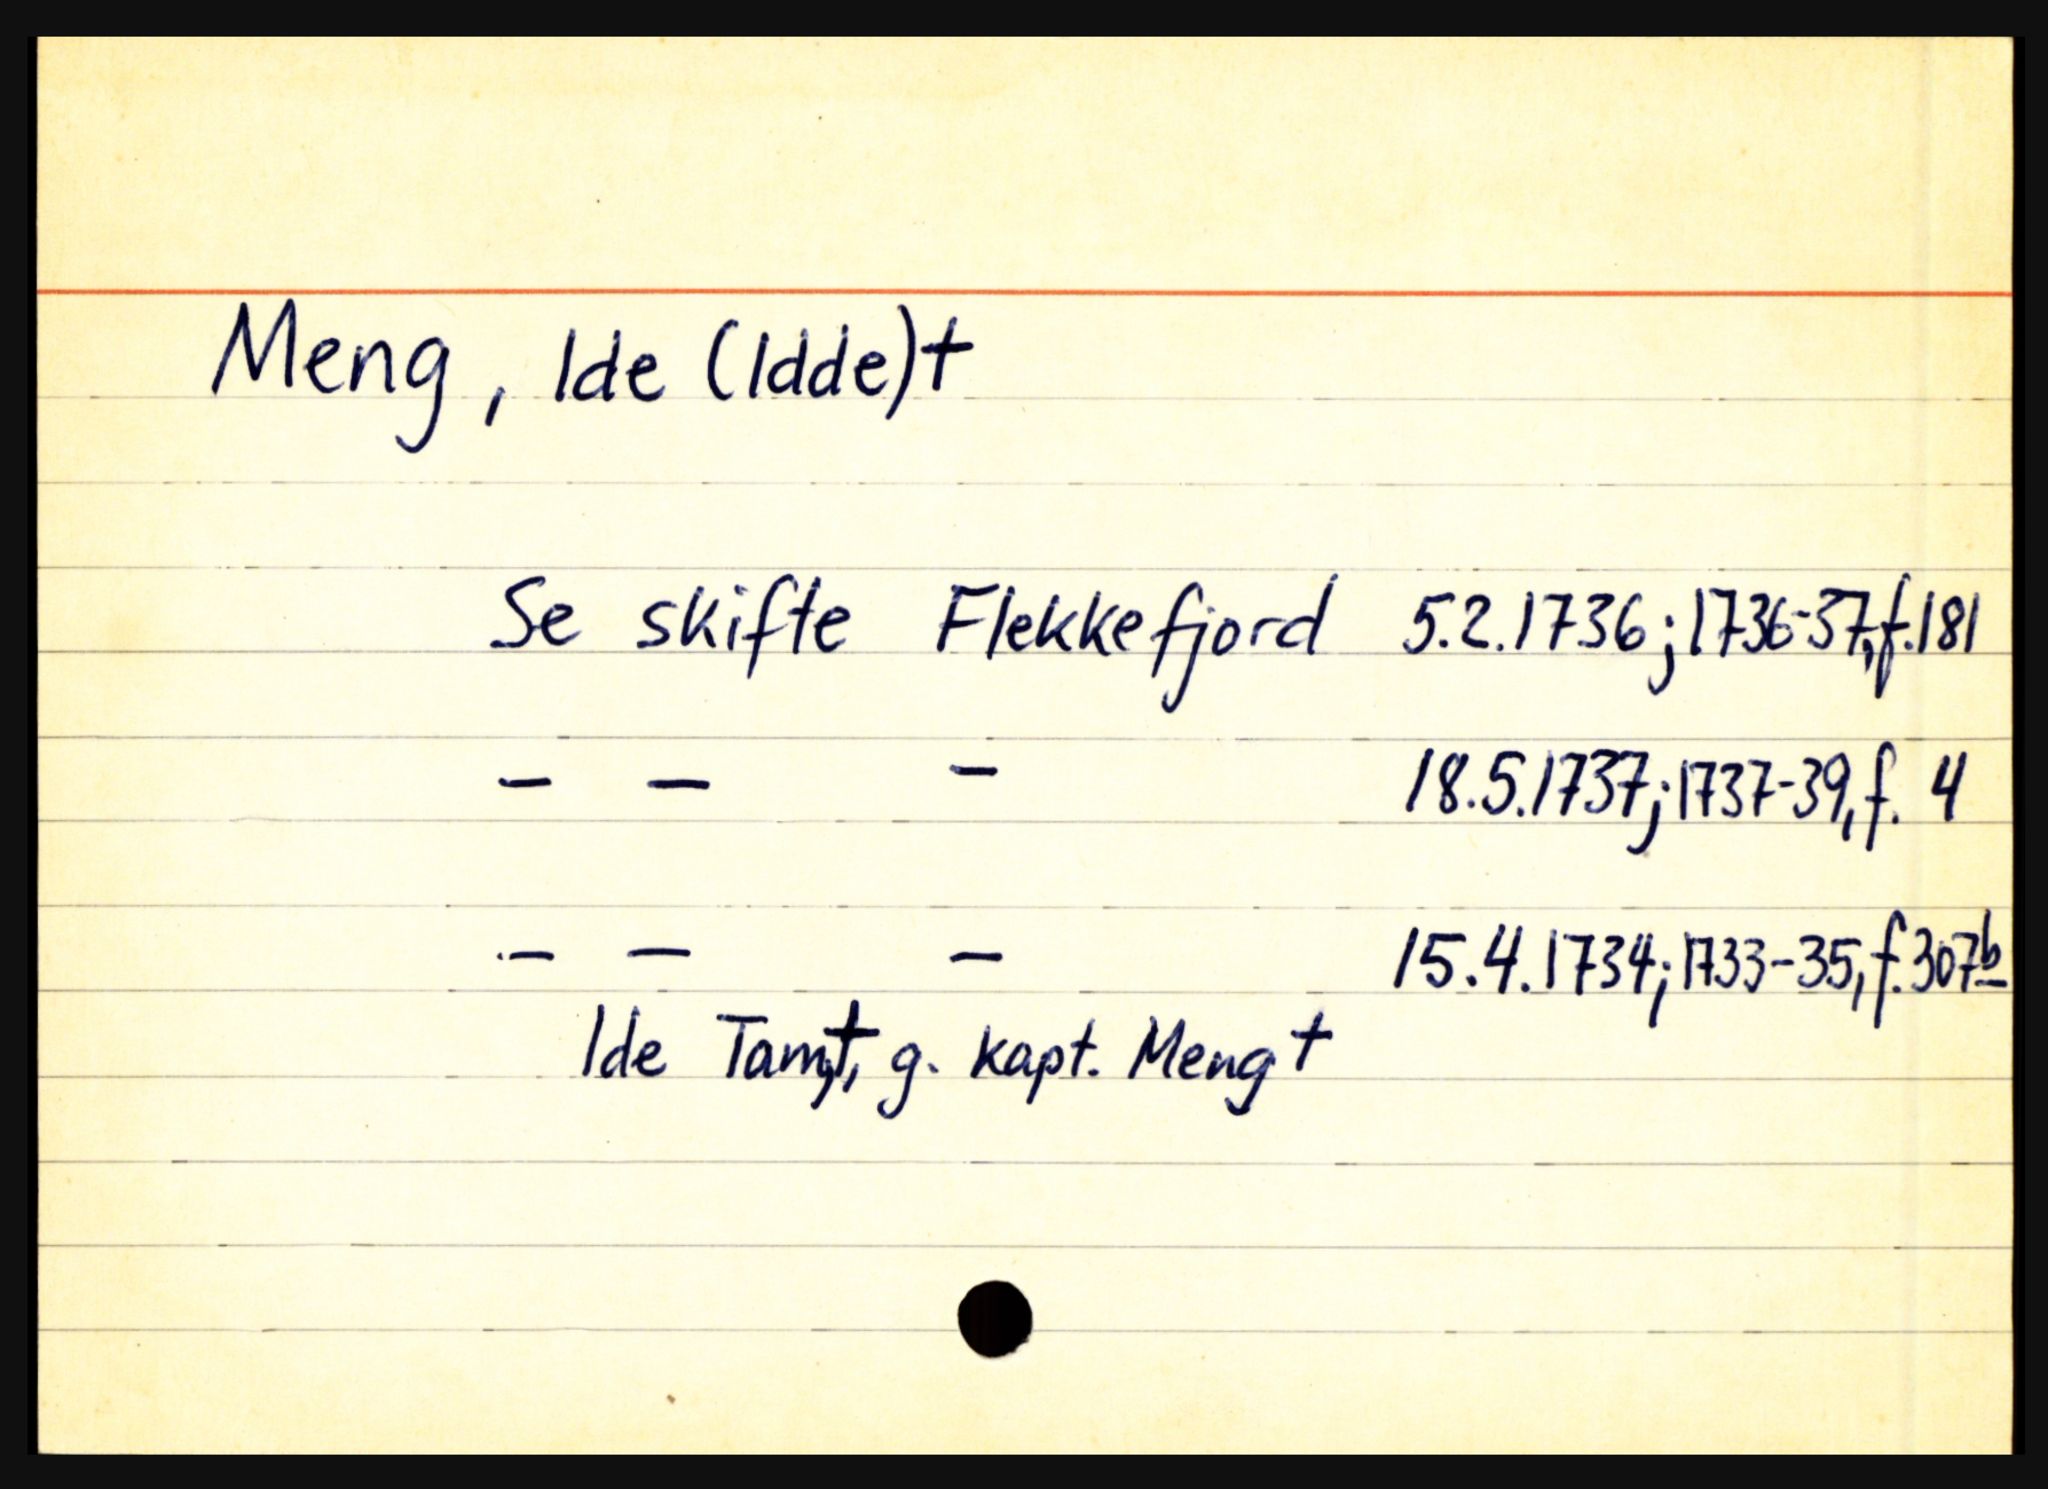 Meng, Ide (Idde)†
Se skifte Flekkefjord 5.2.1736; 1736-37, f. 181
— — — 18.5.1737; 1737-39, f. 4
— — — 15.4.1734; 1733-35, f. 307b
Ide Tam,†, g. kapt. Meng †